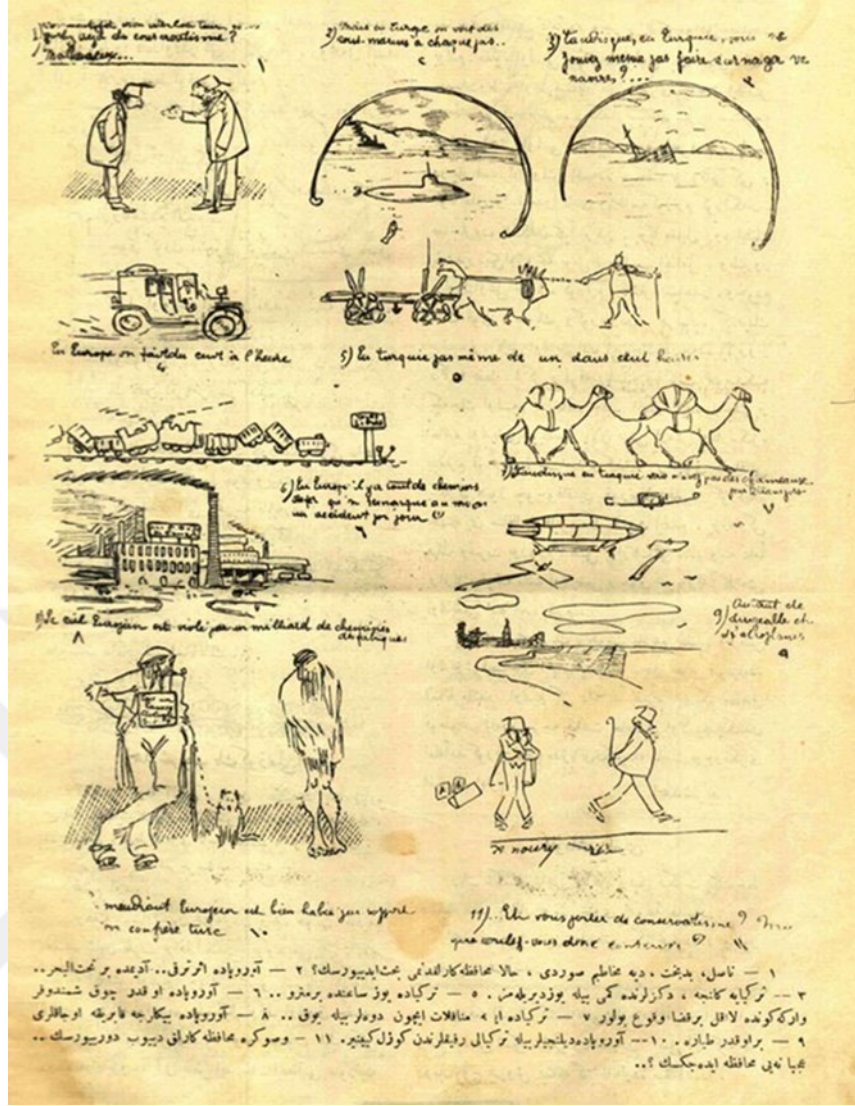 1)
parlez déjà du conservatisme?
Malheureux...
2) Mais en Europe on voit des
sous-marins à chaque pas..
3) tandis que, en Turquie, vous ne
pouvez même pas faire surnager vos
navires?...
En Europe on fait du cent à l'heure
٤
5) En turquie pas même de un dans cent heures
٥
6) En Europe il y a tant de chemins
de fer qu'on remarque au moins
un accident par jour
٦
7) Tandisque en turquie vous n'avez pas des chameaux
٧
8) Le ciel Européen est violé par un milliard de cheminées
de fabriques
٨
Autant de
9) dirigeable et
d'aéroplanes
٩
mendiant Européen est bien habillé par rapport
son confrère turc ١٠
11).. Et vous parlez de conservatisme?
que voulez-vous donc conserver? ١١
١ — ناصل، بدبخت، دیه مخاطبم صوردی ، حالا محافظه‌کارلقدنمی بحث ایدییورسك؟ ٢ — آوروپاده اثر ترقی.. آدیمده بر تحت‌البحر..
٣ -- ترکیایه کلنجه ، دکزلرنده کمی بیله یوزدیریله‌من . ٥ — ترکیاده یوز ساعتده برمترو .. ٦ — آوروپاده او قدر چوق شمندوفر
وارکه کونده لااقل برقضا وقوع بولور ٧ — ترکیاده ایسه مناقلات ایچون دوه‌لر بیله یوق .. ٨ — آوروپاده بیکلرجه فابریقه اوجاقلری
٩ — براوقدر طیاره . ١٠ -- آوروپاده دیلنجیلر بیله ترکیالی رفیقلرندن کوزل کیینیر. ١١ — وصوکره محافظه‌کارلق دییوب دورییورسك ..
عجبا نه‌یی محافظه ایده‌جکسك ؟..